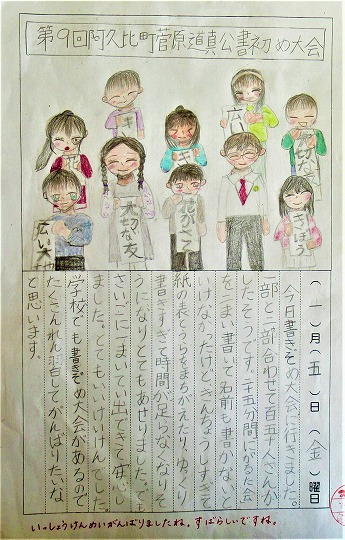 第9回阿久比町菅原道真公書初め大会
花
き
き
六
大切な友
広い大地
大切な友
花がさく
きぼう
(一)月(五)日(金)曜日
今日書きぞめ大会に行きました。
一部と二部合わせて百五十人さんか
したそうです。二十五分間で
を二まい書いて名前を書かないと
いけなかったけど、きんちょうしすぎて
紙の表とうらをまちがえたり、ゆっくり
書きすぎて時間が足らなくなりそ
うになりとてもあせりました。でも、
さいごに一まいていしゅつできて安心し
ました。とてもいいけいけんでした。
学校でも書きぞめ大会があるので
たくさんれん習してがんばりたいな
と思います。
いっしょうけんめいがんばりましたね。すばらしいですね。